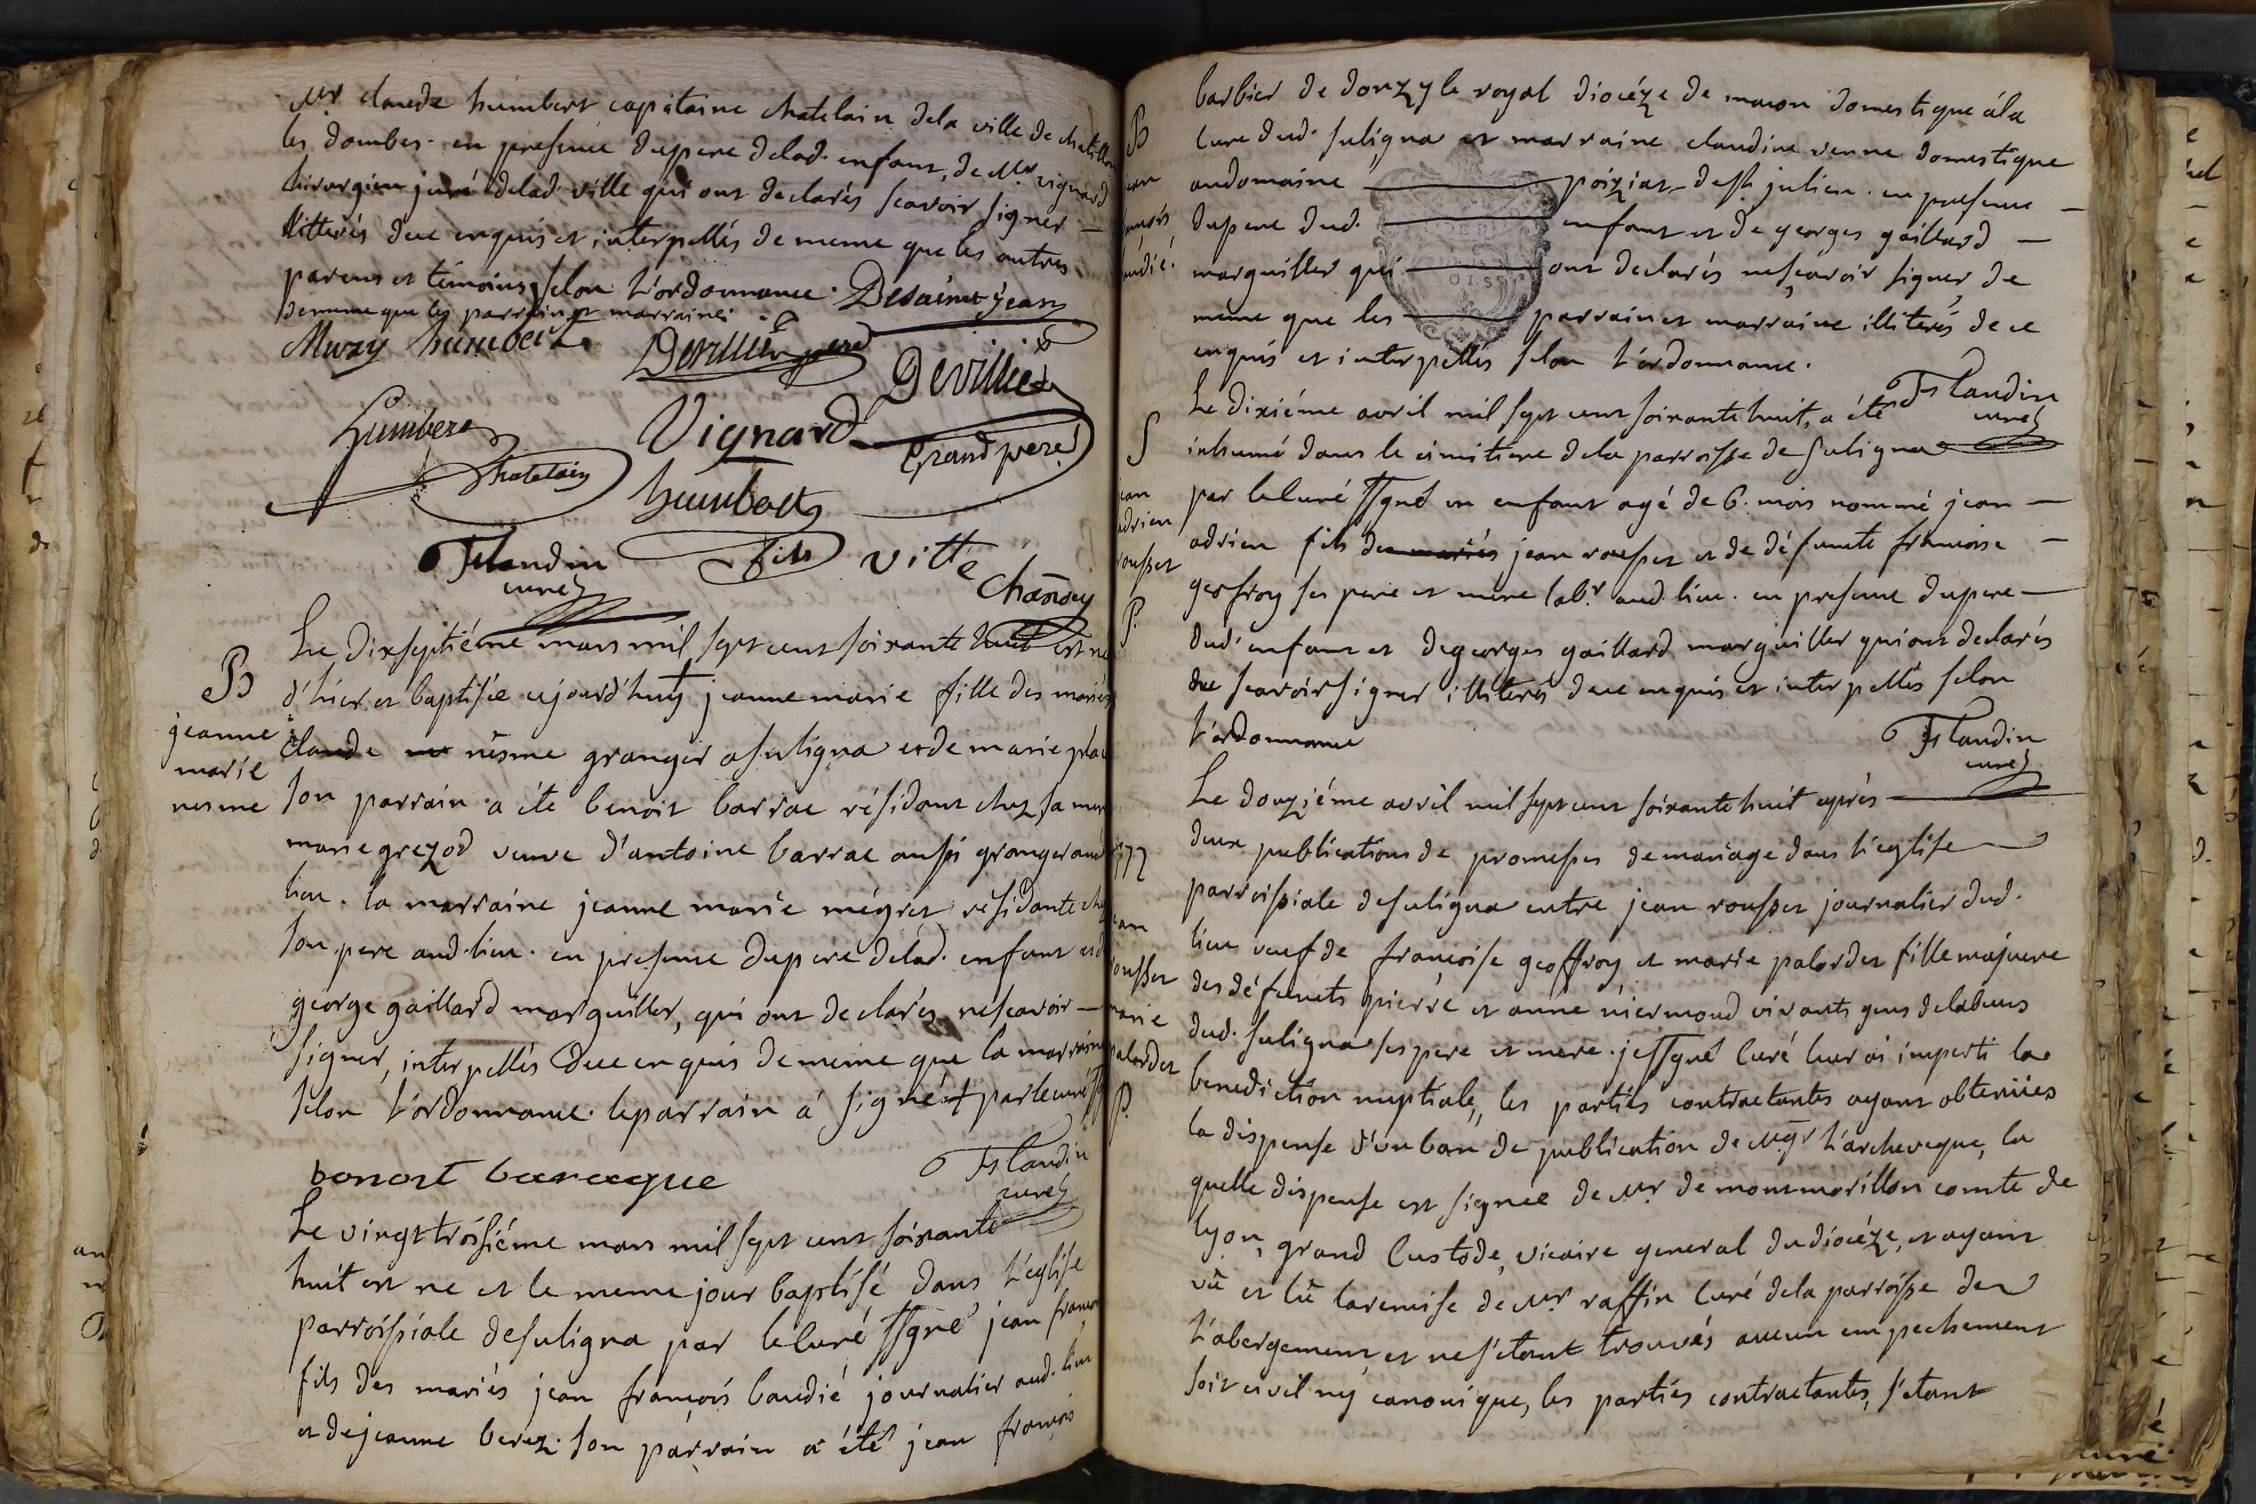 Mr claude humbert capitaine chatelain dela ville de chatillon
les dombes. en presence dupere delad. enfant, de Mr vignard
chirurgien juré delad. ville qui ont declarés scavoir signer —
illitterés dece enquis et interpellés de meme que les autres
parens et témoins selon l'ordonnance. Desaint jean
de meme que les parrain et marraine.
Muzy humbert Devillié pere Devillié
humbert Vignard grand pere
chatelain humbert
Flandin fils vitte
curé chanoy
Le dixseptiéme mars mil sept cent soixante huit est née
B
d'hier et baptisée cejourd'huy jeanne marie fille des mariés
jeanne
claude nesme granger a suligna et de marie
marie
nesme
son parrain a éte benoit barrac résidant chez sa mere
marie grezod veuve d'antoine barrac aussi granger aud.
lieu. la marraine jeanne marie mégret résidante chez
son pere aud. lieu. en presence dupere delad. enfant et de
george gaillard marguiller, qui ont declarés nescavoir —
signer, interpellés dece enquis de meine que la marraine
selon l'ordonnance. leparrain a signé parlecuré
benoit baraque Flandin
curé
Le vingt troisiéme mars mil sept cent soixante
huit est ne et le meme jour baptisé dans l'eglise
parroissiale desuligna par lecuré ssgné jean francois
fils des mariés jean françois baudié journalier aud. lieu
et dejeanne berez. son parrain a été jean francois
barbier de donzy le royal diocéze de macon domestique ála
B
cure dud. suligna et marraine claudine venne domestique
jean
audomaine poiziat dest julien. en presence —
francois
dupere dud. enfant et de georges gaillard —
baudié.
marguiller qui ont declarés nescavoir signer de
meme que les parrain et marraine illiterés dece
enquis et interpellés selon l'ordonnance.
Flandin
curé
Le dixiéme avril mil sept cent soixante huit, a été
S
inhumé dans le cimitiere dela parroisse de suligna
par lecuré ssgné un enfant agé de 6. mois nommé jean —
jean
adrien
adrien fils des mariés jean rousset et de défunte francoise —
rousset
geoffroy ses pere et mere labr. aud. lieu. en presence dupere —
P.
dud. enfant et degeorges gaillard marguiller qui ont declarés
scavoir signer illiterés dece enquis et interpellés selon
l'ordonnance Flandin
curé
Le douziéme avril mil sept cent soixante huit après
deux publications de promesses de mariage dans l'eglise
parroissiale desuligna entre jean rousset journalier dud.
jean
lieu veuf de françoise geoffroy et marie palordet fille majeure
rousset
des défunts pierre et anne niermond vivants gens delabeurs
marie
dud. suligna ses pere et mere. je ssgné curé leur ai imparti la
palordet
benediction nuptiale, les parties contractantes ayant obtenües
P.
la dispense d'un ban de publication de Mgr l'archeveque, la
quelle dispense est signée de Mr. de montmorillon comte de
lyon, grand Custode, vicaire general dudiocéze, et ayant
vû et lû laremise de Mr raffin curé dela parroisse de
l'abergement et nes'etant trouvés aucun empechement
soit civil ny canonique, les parties contractantes, s'etant